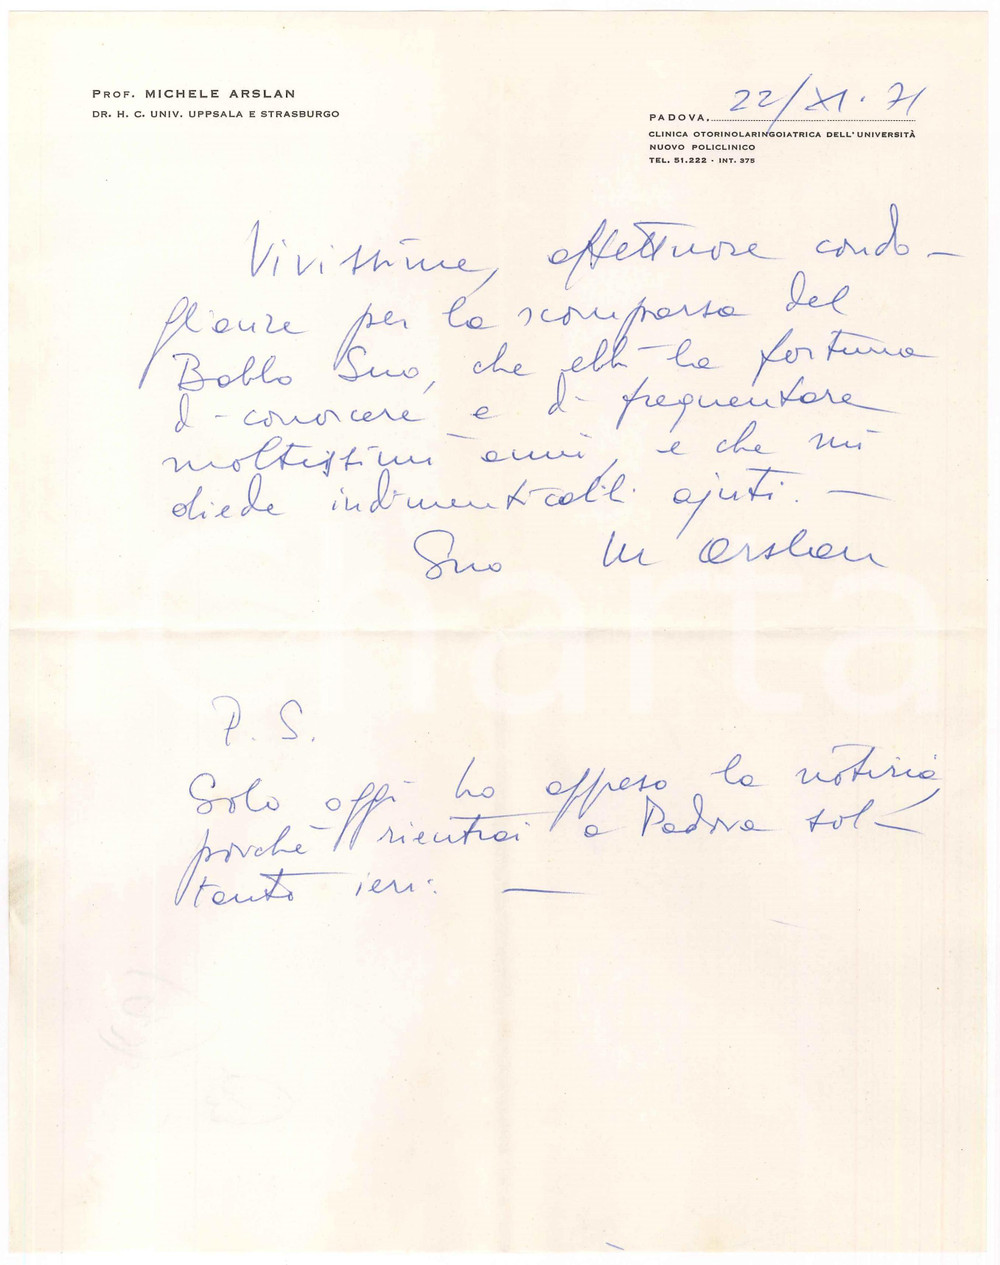 PROF. MICHELE ARSLAN
DR. H. C. UNIV. UPPSALA E STRASBURGO
PADOVA, 22/XI. 71
CLINICA OTORINOLARINGOIATRICA DELL'UNIVERSITÀ
NUOVO POLICLINICO
TEL. 51.222 - INT. 375
Vivissime, affettuose condo-
glianze per la scomparsa del
Babbo Suo, che ebbi la fortuna
di conoscere e di frequentare
moltissimi anni, e che mi
diede indimenticabili ajuti. —
Suo M Arslan
P. S.
Solo oggi ho appeso la notizia,
perchè rientrai a Padova sol-
tanto ieri. —
unarta